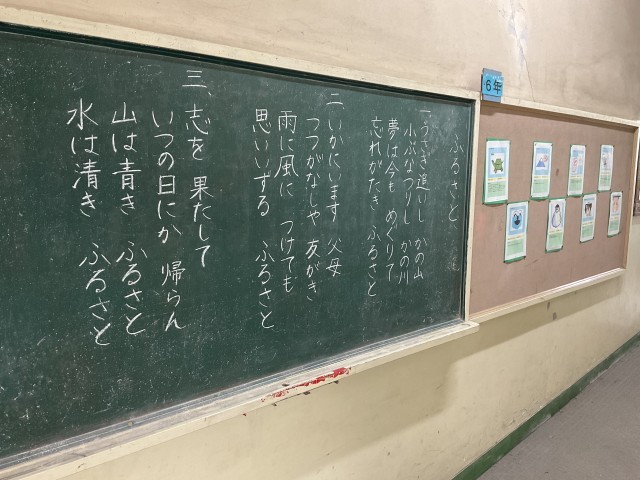 ふるさと
一、うさぎ追いし かの山
小ぶなつりし かの川
夢は今も めぐりて
忘れがたき ふるさと
二、いかにいます 父母
つつがなしや 友がき
雨に風に つけても
思いいずる ふるさと
三、志を 果たして
いつの日にか 帰らん
山は青き ふるさと
水は清き ふるさと
6年